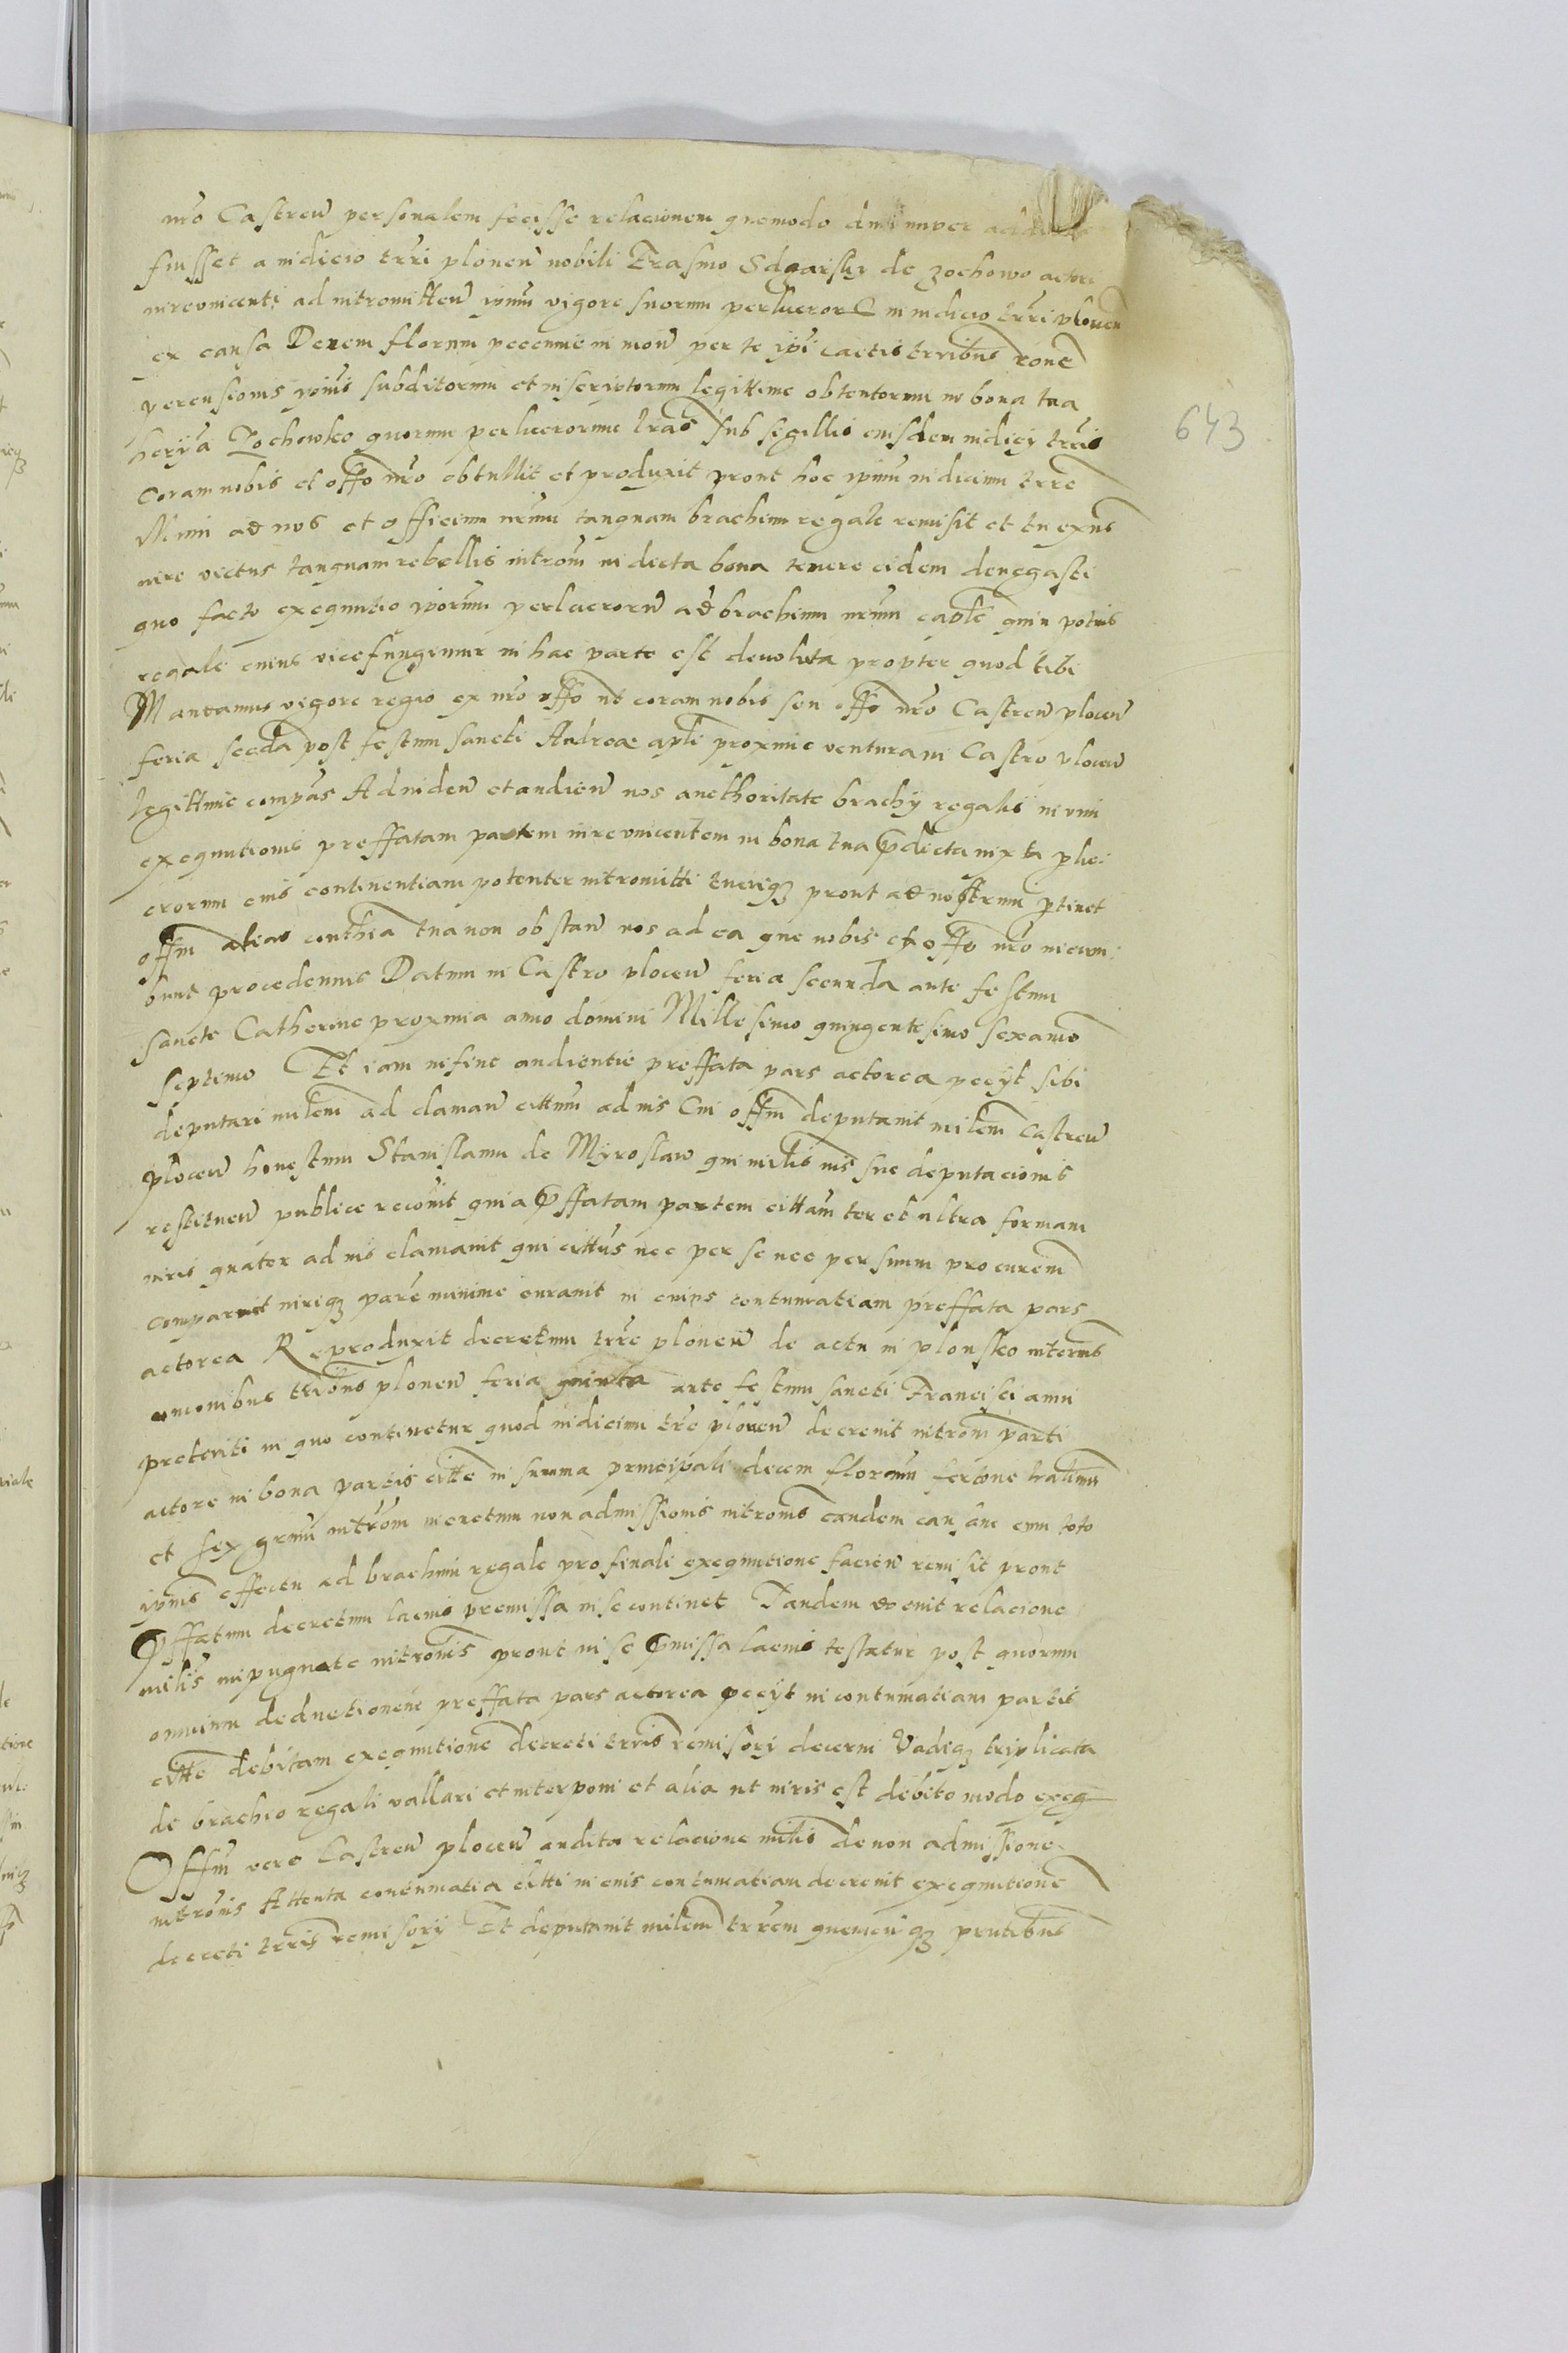 nr̃o Castreñ personalem fecisse relacionem quomodo dum nuper
fuisset a iudicio terri plonen̄ nobili Erasmo de Zochowo actori
iurevincenti ad intromitteñ ipm̄ vigore suorum perlucror in iudicio terri plonen̄
ex causa Decem florum pecunie in mon̄ per te ipi̅ actis terribus rone
percusionis ipius subditorum et inscriptorum legittime obtentorum in bona tua
herỹa Zochowko quorum perlucrorume lras sub sigillis eiusdem iudicij terris
coram nobis et offo nr̃o obtullit et produxit prout hoc ipm̄ iudicium terre
ad nos et officium nrum tanquam brachium regale remisit et tu exn̄s
iure victus tanquam rebellis introm̄ in dicta bona temere eidem denegasti
quo facto exequutio iporum perlucroru ad brachium nrum quin potius
regale cuius vice fungimur in hac parte est devoluta propter quod tibi
Mandamus vigore regio ex nr̃o offo ut coram nobis seu offo nr̃o Castreñ ploceñ
feria secda post festum sancti Andreae apli proxime ventura in Castro ploceñ
legittime compas Ad videñ et audieñ nos aucthoritate brachÿ regalis in vim
exequutionis preffatam partem iurevincentem in bona tua pdicta iuxta plu
crorum eius continentiam potenter intromitti tuerique prout ad nostrum ptinet
offm alias conthia tua non obstañ nos ad ea que nobis ex offo nr̃o incum
bunt procedemus Datum in Castro ploceñ feria secunda ante festum
sancte Catherine proxima anno domini Millesimo quingentesimo sexamo
septimo Et iam in fine audientie preffata pars actorea peciÿt sibi
deputari milem ad clamañ cittum ad ius Cui offm deputavit milem castreñ
ploceñ honestum Stanislaum de Myroslaw qui milis ius sue deputacionis
restitueñ publice recovit quia pffatam partem cittam ter et ultra formam
iuris quater ad ius clamavit qui cittus nec per se nec per suum procurem
comparuit iurique pare minime curavit in cuius contumatiam preffata pars
actorea Reproduxit decretum terre ploneñ de actu in plonsko
monibus terribus ploneñ feria quinta ante festum sancti Francisci anni
preteriti in quo continetur quod iudicium tere ploneñ decrevit introm parti
actore in bona partis citte in summa principali decem florum fertone
et sex grm introm non admissionis introm̄s eandem causam cum toto
ipius effectu ad brachium regale pro finali exequutione facieñ remisit prout
pffatum decretum lacius premissa in se continet Tandem docuit relacione
milis inpugnate introm̄s prout in se pmissa lacius testatur post quorum
omnium deductionem preffata pars actorea peciÿt in contumatiam partis
citte debitam exequutione decreti terris remisorÿ decerni Vadique triplicata
de brachio regali vallari et interponi et alia ut iuris est debito modo exeq
Offm vero Castreñ ploceñ audita relacione milis de non admissione
introm̄s Attenta contumatia citti in eius contumatiam decrevit exequutione
decreti terris remisorÿ Et deputavit milem terrem quemcunque prntibus
643